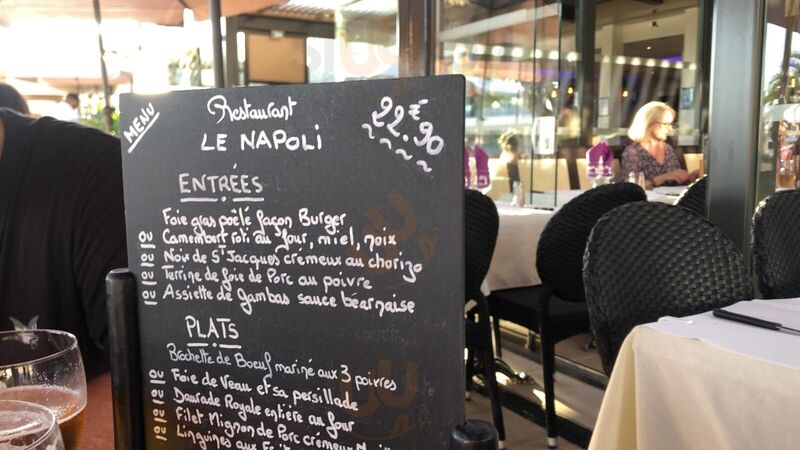 MENU
Restaurant
LE NAPOLI
22.€90
ENTRÉES
Foie gras poêlé façon Burger
ou Camembert roti au four, miel, noix
ou Noix de St Jacques crémeux au chorizo
ou Terrine de foie de Porc au poivre
ou Assiette de gambas sauce béarnaise
PLATS
Brochette de Boeuf mariné aux 3 poivres
ou Foie de veau et sa persillade
ou Daurade Royale entière au four
ou Filet Mignon de Porc crémeux
ou Linguines aux